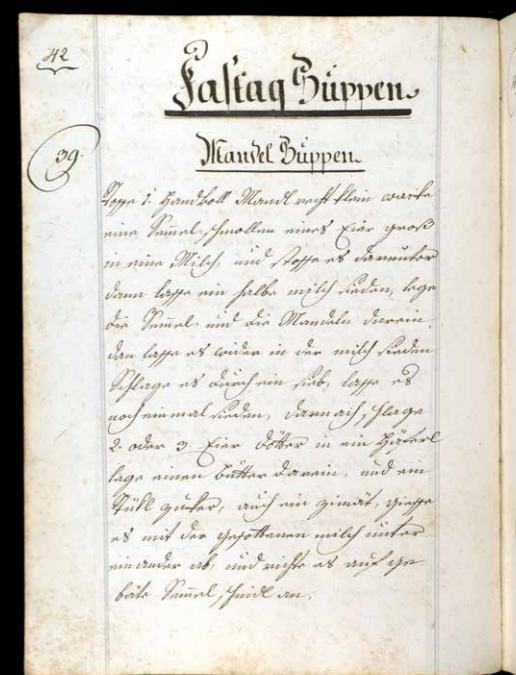 42
Fastag Süppen.
39.
Mandel Süppen.
Stosse 1: Handvoll Mandl recht klein waeike
eine Semel, schmollen eines Eier groß
in eine Milch, und stosse es darunter
dann lasse ein halbe milch sieden, lege
die Semel und die Mandeln darein.
dan lasse es wider in der milch sieden
Schlage es durch ein sieb, lasse es
noch einmal sieden, darnach, schlage
2. oder 3. Eier dötter in ein Häferl
lege einen bütter darein, und ein
Stükl zuker, auch ein zimät, giesse
es mit der gesottenen milch unter
einander ab, und richte es auf ge-
bäte Semel, schnidl an.